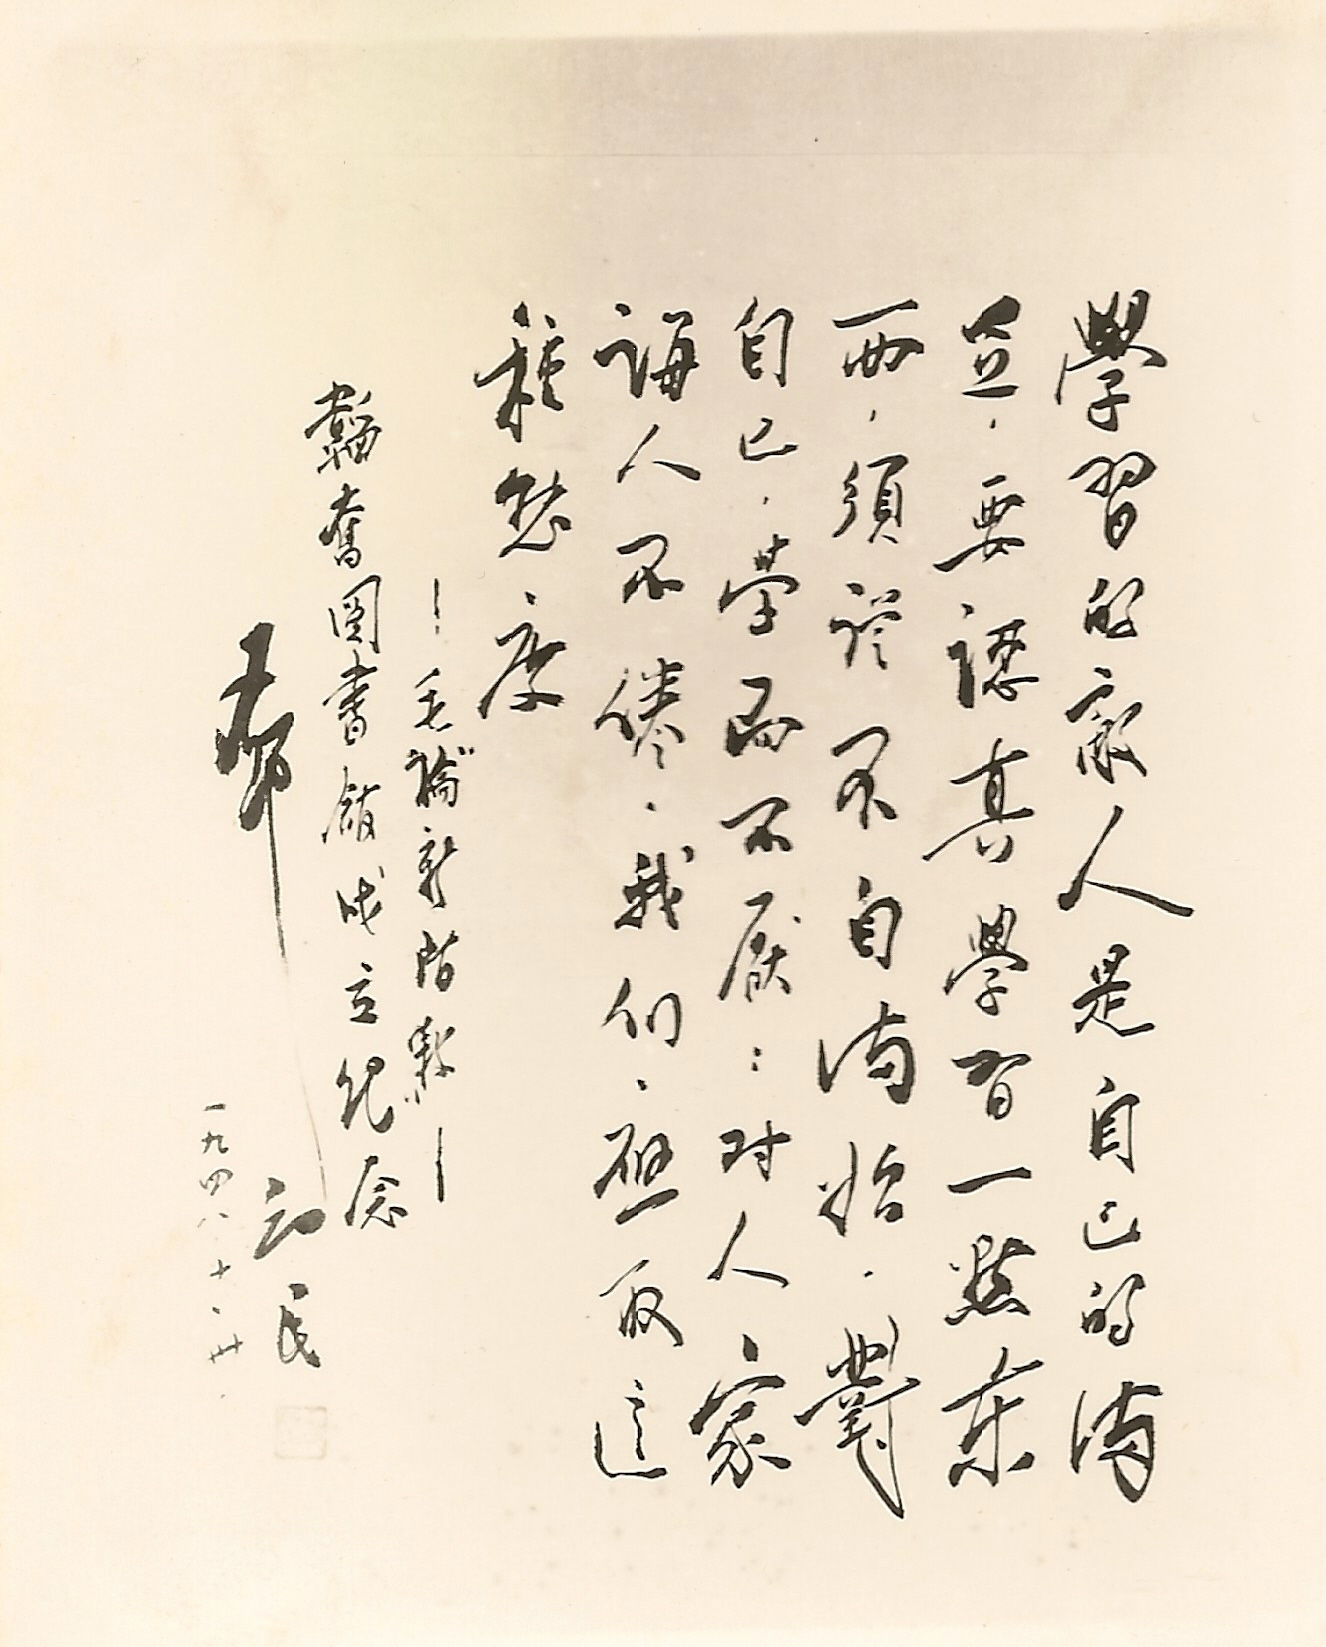 學習的敵人是自己的滿
足，要認真學習一點東
西，須從不自滿始，對
自己，学而不厭：对人家
誨人不倦，我們，應取這
種態度
—毛論新階段—
韜奮图書館成立纪念
民
一九四八、十、卅、